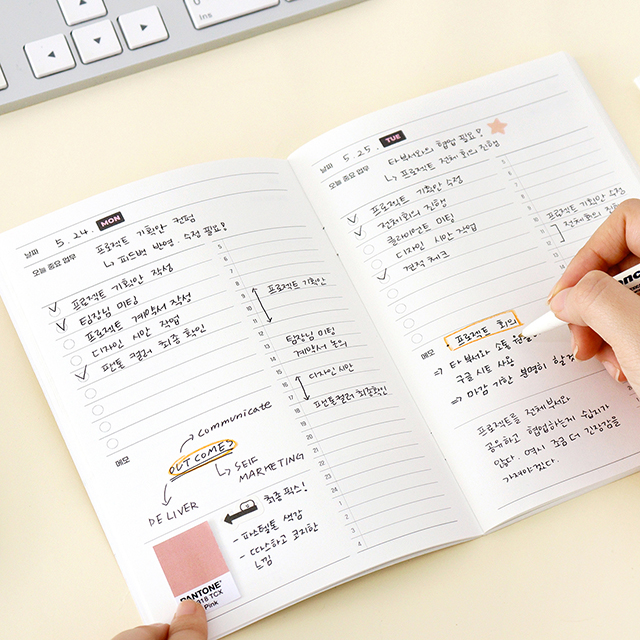 날짜 5. 24. MON
오늘 중요 업무 프로젝트 기획안 컨펌
↳ 피드백 반영. 수정 필요!
프로젝트 기획안 작성
팀장님 미팅
프로젝트 계약서 작성
디자인 시안 작업
팬톤 컬러 최종 확인
5
6
7
8
9 프로젝트 기획안
10
11
12
13 팀장님 미팅
14 계약서 논의
15
16 디자인 시안
17
18 팬톤컬러 최종확인
19
20
21
22
23
24
1
2
3
4
메모
communicate
OUTCOMES
SELF
MARKETING
DELIVER
최종 픽스!
- 파스텔톤 색감
- 따스하고 포지한
느낌
PANTONE®
318 TCX
Pink
날짜 5. 25. TUE
오늘 중요 업무 타부서와의 협업 필요?
↳ 프로젝트 전체 회의 진행
프로젝트 기획안 수정
전체회의 진행
클라이언트 미팅
디자인 시안 작업
견적 체크
5
6
7
8
9
10 프로젝트 기획안 수정
11 전체회의
12
메모
프로젝트 회의
⇒ 타부서와 소통
구글 시트 사용
⇒ 마감 기한 분명히
프로젝트를 전체부서와
공유하고 협업하는게 쉽지가
않다. 역시 조금 더 긴장감을
가져야겠다.